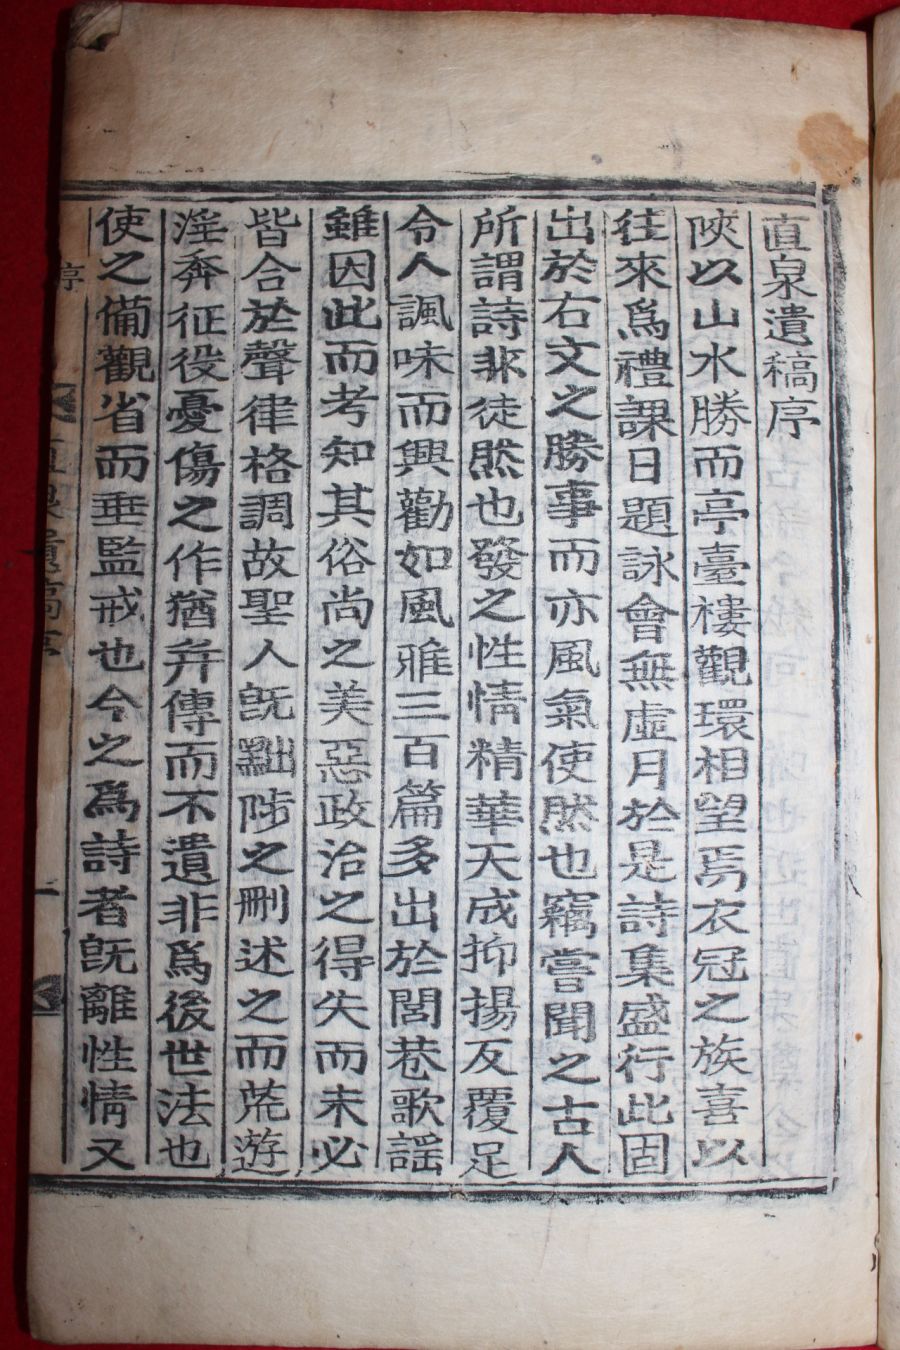 直泉遺稿序
陜以山水勝而亭臺樓觀環相望焉衣冠之族喜以
往來爲禮課日題詠會無虛月於是詩集盛行此固
出於右文之勝事而亦風氣使然也竊嘗聞之古人
所謂詩非徒然也發之性情精華天成抑揚反覆足
令人諷味而興勸如風雅三百篇多出於閭巷歌謡
雖因此而考知其俗尚之美惡政治之得失而未必
皆合於聲律格調故聖人旣黜陟之刪述之而荒遊
淫奔征役憂傷之作猶幷傳而不遺非爲後世法也
使之備觀省而垂監戒也今之爲詩者旣離性情又
序
一